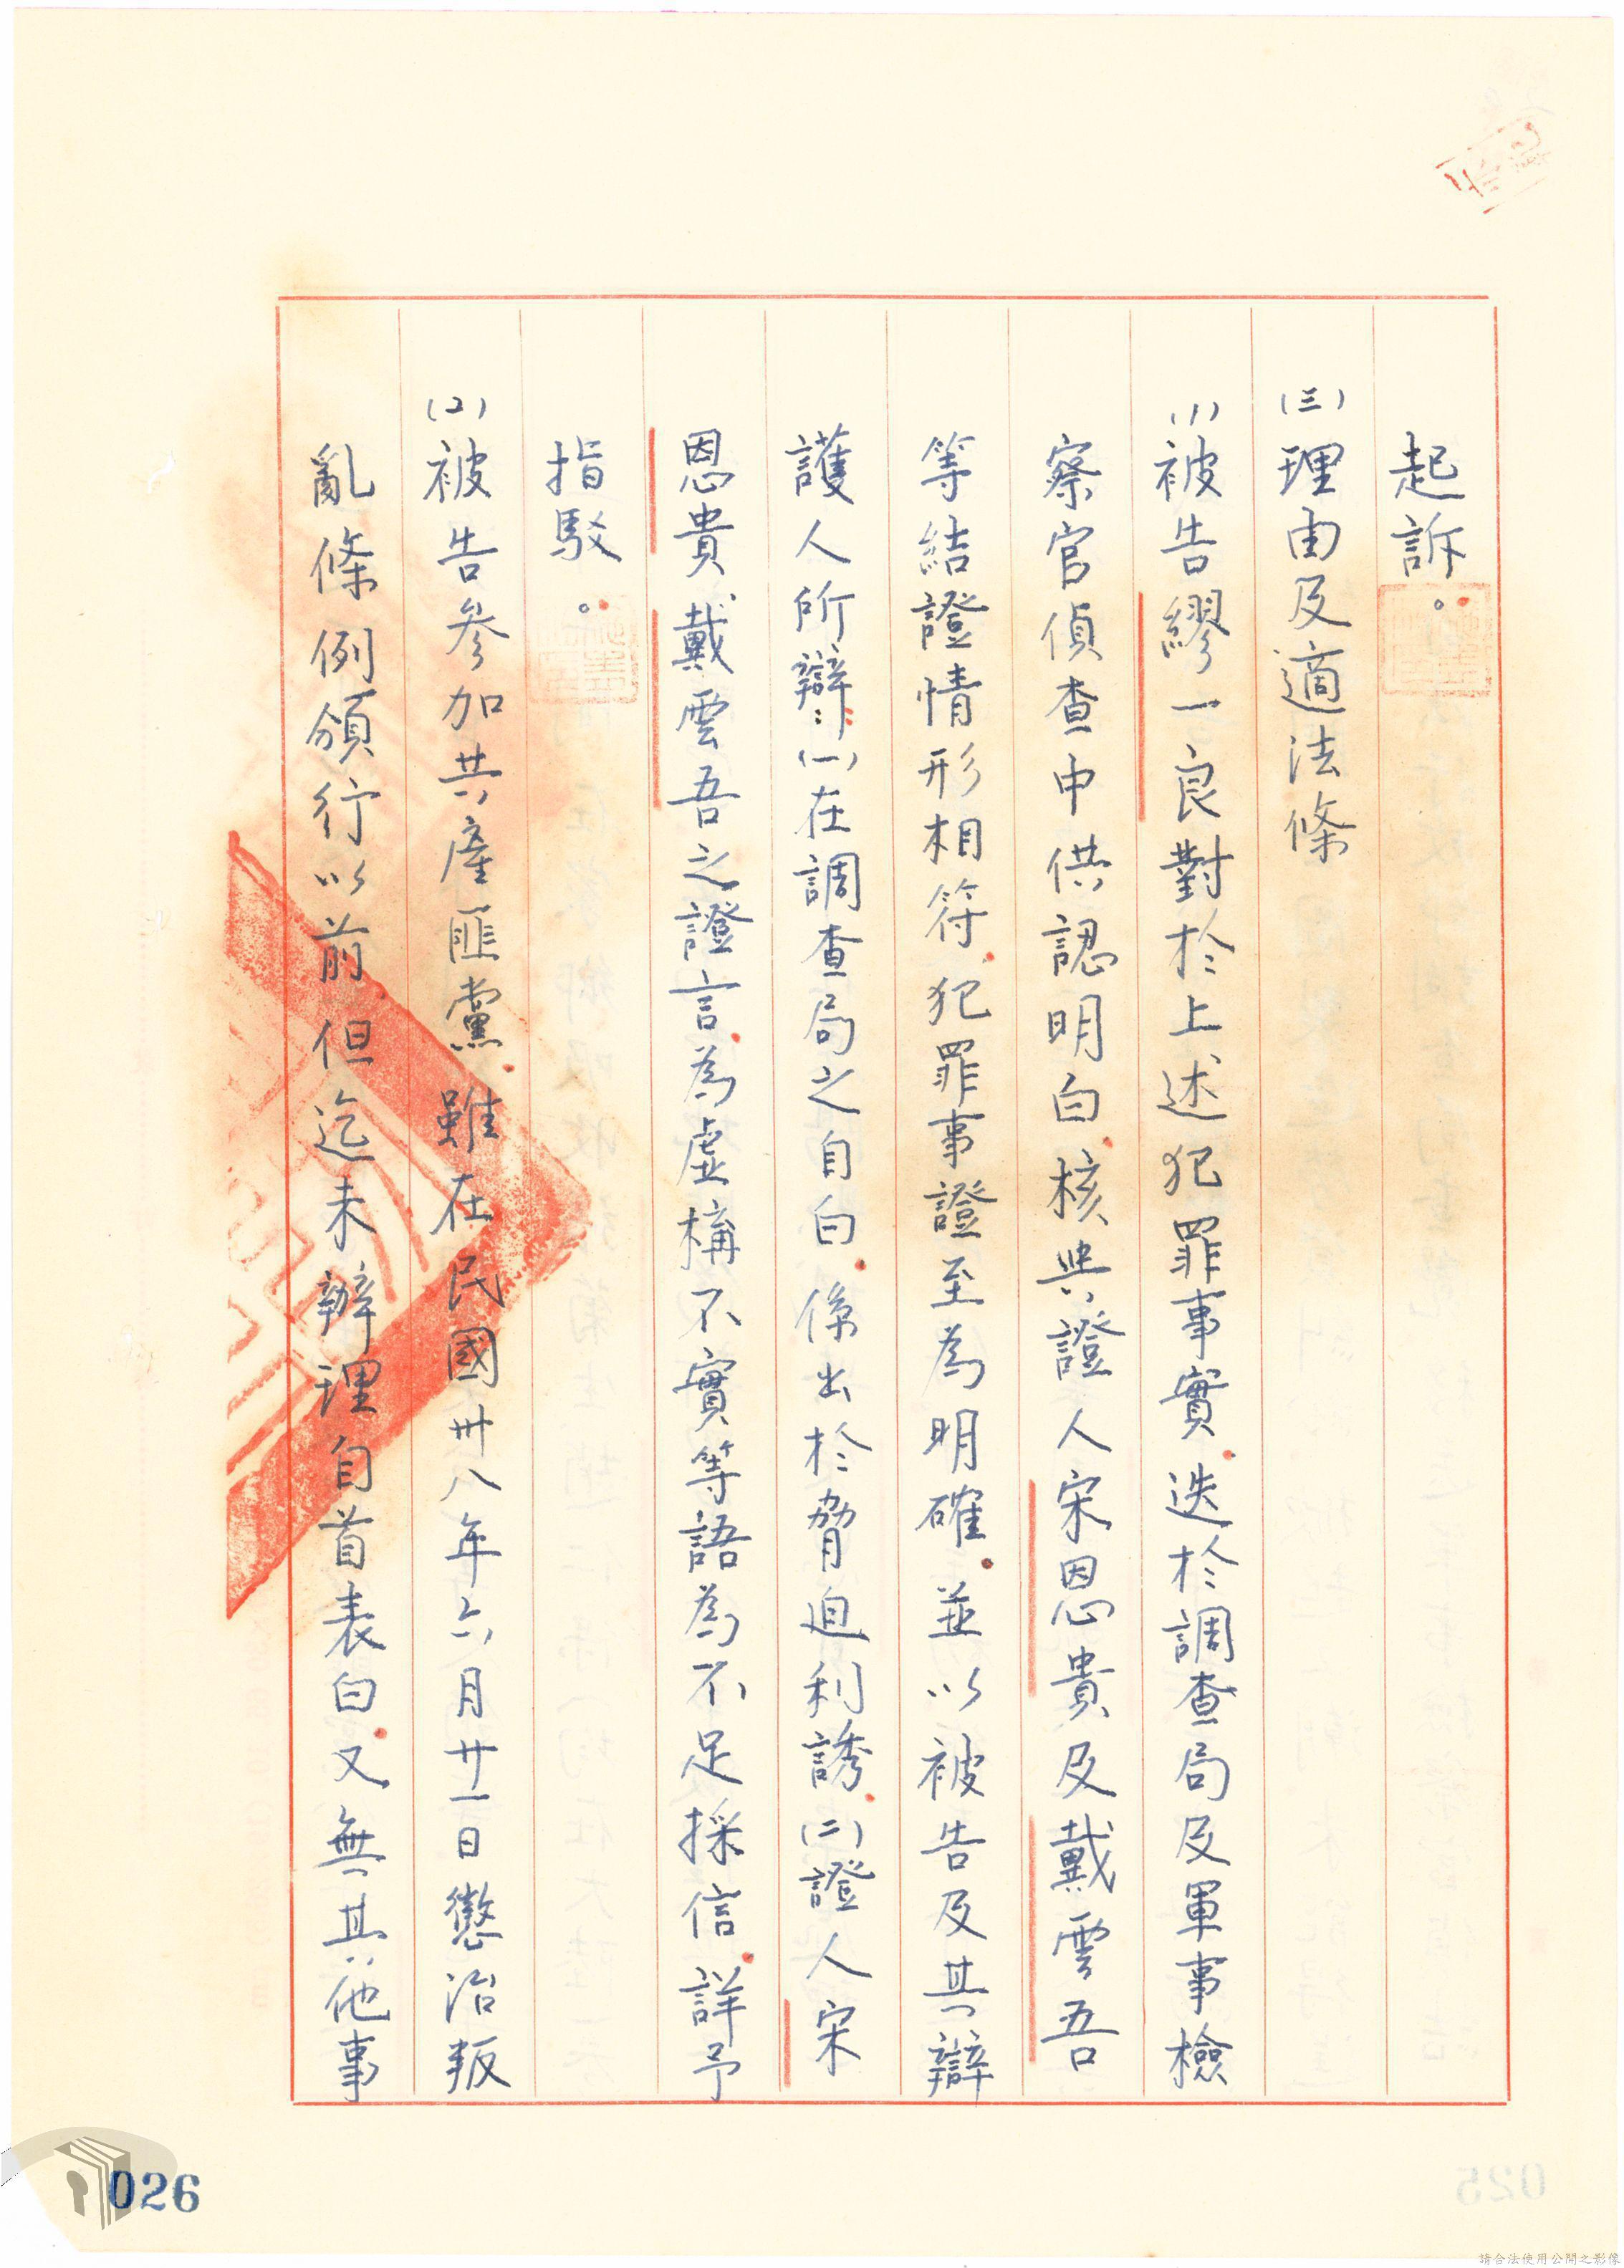 起訴。
(三)理由及適法條
(1)被告繆一良對於上述犯罪事實.迭於調查局及軍事檢
察官偵查中供認明白.核與證人宋恩貴及戴雲吾
等結證情形相符.犯罪事證至為明確.並以被告及其辯
護人所辯:(一)在調查局之自白.係出於脅迫利誘.(二)證人宋
恩貴、戴雲吾之證言.為虛構不實等語為不足採信.詳予
指駁。
(2)被告參加共產匪黨.雖在民國卅八年六月廿一日懲治叛
亂條例頒行以前.但迄未辦理自首表白.又無其他事
026
025
請合法使用公開之影像